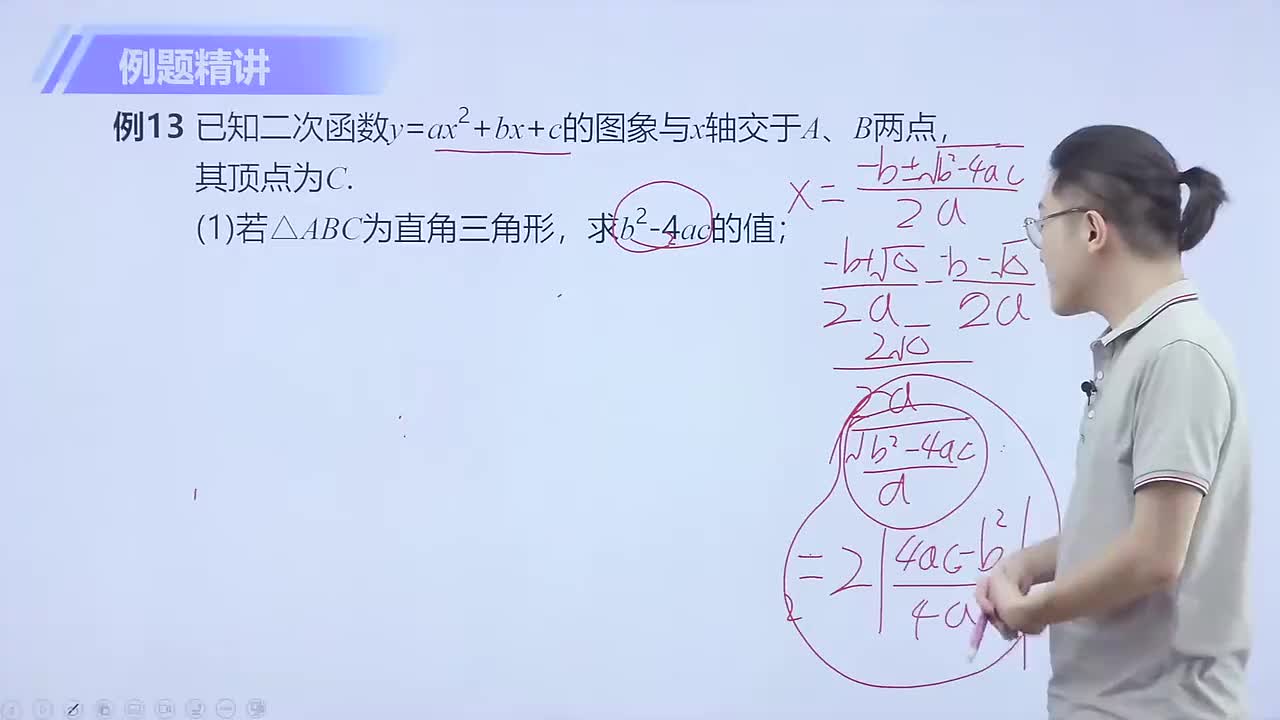 例题精讲
例13 已知二次函数y=ax²+bx+c的图象与x轴交于A、B两点，
其顶点为C.
(1)若△ABC为直角三角形，求b²-4ac的值；
x = (-b±√(b²-4ac))/(2a)
(-b+√Δ)/(2a) - (-b-√Δ)/(2a)
2√Δ/(2a)
√(b²-4ac)/a
= 2|(4ac-b²)/(4a)|